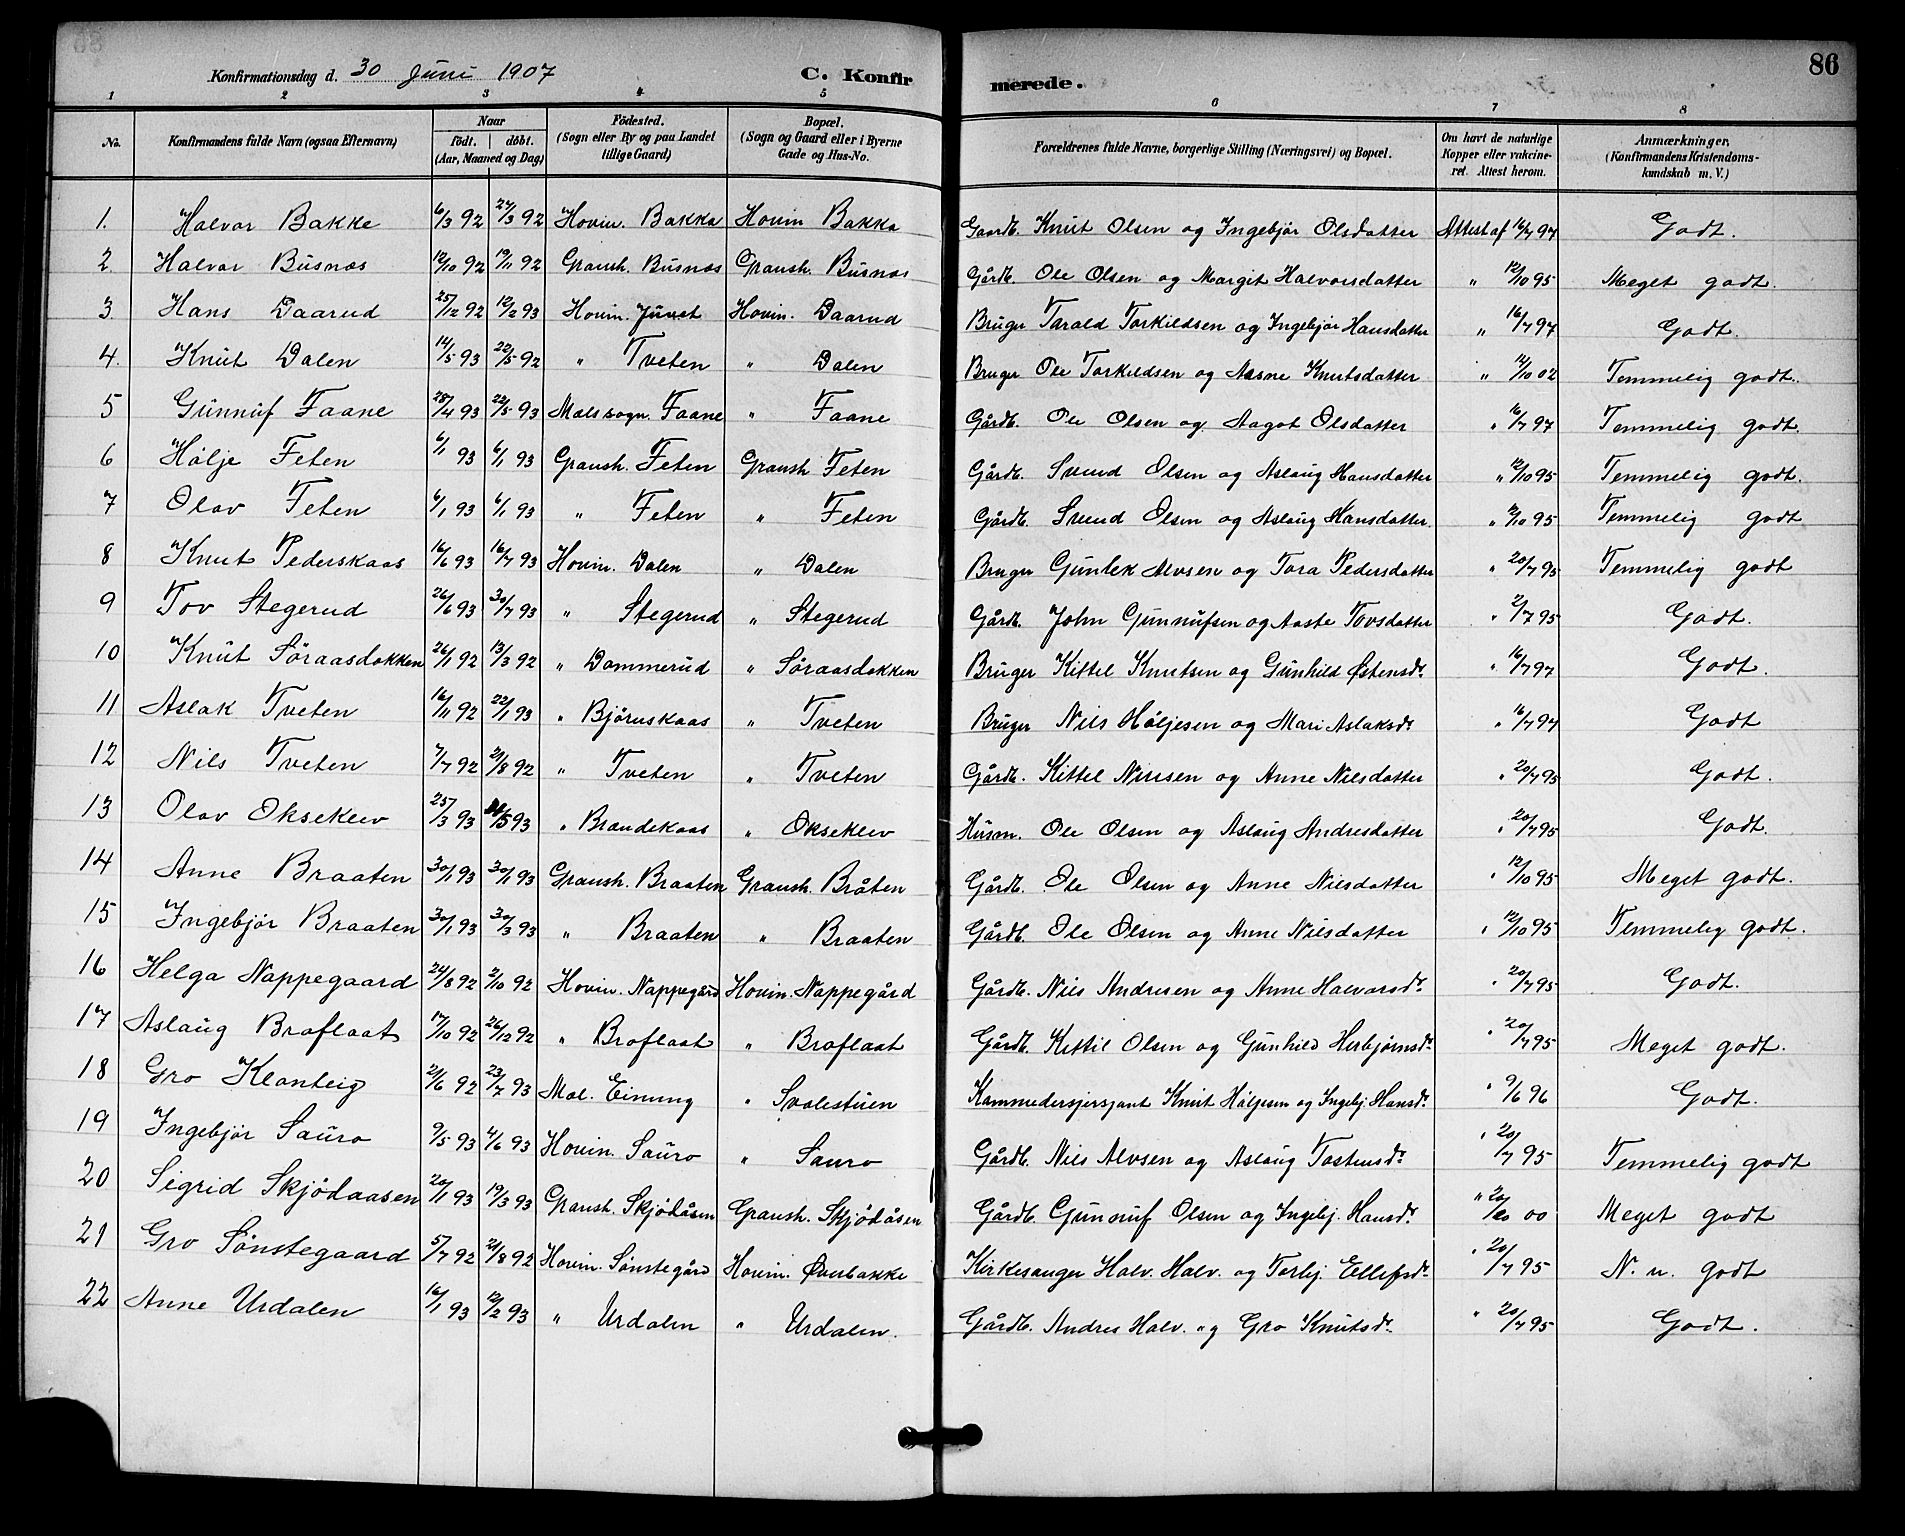 86
Konfirmationsdag d. 30 Juni 1907 C. Konfirmerede.
1 2 3 4 5 6 7 8
No. Konfirmandens fulde Navn (ogsaa Efternavn) Naar födt. döbt. (Aar, Maaned og Dag) Födested. (Sogn eller By og paa Landet tillige Gaard) Bopæl. (Sogn og Gaard eller i Byerne Gade og Hus-No. Forældrenes fulde Navne, borgerlige Stilling (Næringsvei) og Bopæl. Om havt de naturlige Kopper eller vakcineret. Attest herom. Anmærkninger. (Konfirmandens Kristendomskundskab m. V.)
1. Halvor Bakke 6/3 92 27/3 92 Hovin. Bakka Hovin Bakka Gaardb. Knut Olsen og Ingebjör Olsdatter Attest af 16/7 97 Godt.
2. Halvor Busnes 12/10 92 19/11 92 Gransh. Busnes Gransh. Busnes Gårdb. Ole Olsen og Margit Halvorsdatter " 12/10 95 Meget godt.
3. Hans Daarud 25/12 92 12/2 93 Hovin. Juvet Hovin. Daarud Bruger Tarald Torkildsen og Ingebjör Hansdatter " 16/7 97 Godt.
4. Knut Dalen 14/5 93 22/5 92 " Tveten " Dalen Bruger Ole Torkildsen og Aasne Knutsdatter " 14/10 02 Temmelig godt.
5 Gunnuf Faane 28/4 93 22/5 93 Mælsogn. Faane " Faane Gårdb. Ole Olsen og Aagot Olsdatter " 16/7 97 Temmelig godt.
6 Hölje Feten 6/1 93 6/1 93 Gransh. Feten Gransh Feten Gårdb. Svend Olsen og Aslaug Hansdatter " 12/10 95 Temmelig godt.
7 Olav Feten 6/1 93 6/1 93 " Feten " Feten Gårdb. Svend Olsen og Aslaug Hansdatter. " 12/10 95 Temmelig godt
8 Knut Pederskaas 16/6 93 16/7 93 Hovin. Dalen " Dalen Bruger Gunlek Alvsen og Tora Pedersdatter " 20/7 95 Temmelig godt
9 Tov Stegerud 26/6 93 30/7 93 " Stegerud " Stegerud Gårdb. John Gunnufsen og Aaste Tovsdatter " 2/7 95 Godt.
10 Knut Söraasdokken 26/1 92 13/3 92 " Dommerud " Söraasdokken Bruger Kittel Knutsen og Gunhild Østensdr. " 16/7 97 Godt.
11 Aslak Tveten 16/11 92 22/1 93 " Björnskaas " Tveten Bruger Nils Höljesen og Mari Aslaksdr " 16/7 97 Godt
12 Nils Tveten 7/7 92 21/8 92 " Tveten " Tveten Gårdb. Kittel Nilsen og Anne Nilsdatter " 20/7 95 Godt.
13 Olav Oksekleiv 25/3 93 /5 93 " Brandekaas " Oksekleiv Husm. Ole Olsen og Aslaug Andresdatter " 20/7 95 Godt.
14 Anne Braaten 30/1 93 30/1 93 Gransh. Braaten Gransh. Bråten Gårdb. Ole Olsen og Anne Nilsdatter " 12/10 95 Meget godt.
15 Ingebjör Braaten 30/1 93 30/3 93 " Braaten " Braaten Gårdb. Ole Olsen og Anne Nilsdatter " 12/10 95 Temmelig godt.
16 Helga Nappegaard 24/8 92 2/10 92 Hovin. Nappegård Hovin. Nappegård Gårdb. Nils Andresen og Anne Halvorsdr " 20/7 95 Godt.
17 Aslaug Broflaat 17/10 92 26/12 92 " Broflaat " Broflaat Gårdb. Kittil Olsen og Gunhild Herbjörnsdr " 20/7 95 Meget godt.
18 Gro Klonteig 21/6 92 23/7 93 Mæl. Einung " Svalestuen Kommedersjersjant Knut Höljesen og Ingebj. Hansdr " 9/6 96 Godt.
19 Ingebjör Sauro 9/5 93 4/6 93 Hovin. Sauro " Sauro Gårdb. Nils Alvsen og Aslaug Tostensdr " 20/7 95 Temmelig godt
20 Sigrid Skjödaasen 20/1 93 19/3 93 Gransh. Skjödåsen Gransh. Skjödåsen Gårdb. Gunnuf Olsen og Ingebj. Hansdr " 20/10 00 Meget godt
21 Gro Sönstegaard 5/7 92 21/8 92 Hovin. Sönstegård Hovin. Øverbakke Kirkesanger Halv. Halv. og Torbj. Ellefsdr " 20/7 95 N. n. godt
22 Anne Urdalen 16/1 93 12/2 93 " Urdalen " Urdalen. Gårdb. Andres Halv. og Gro Knutsdr " 20/7 95 Godt.